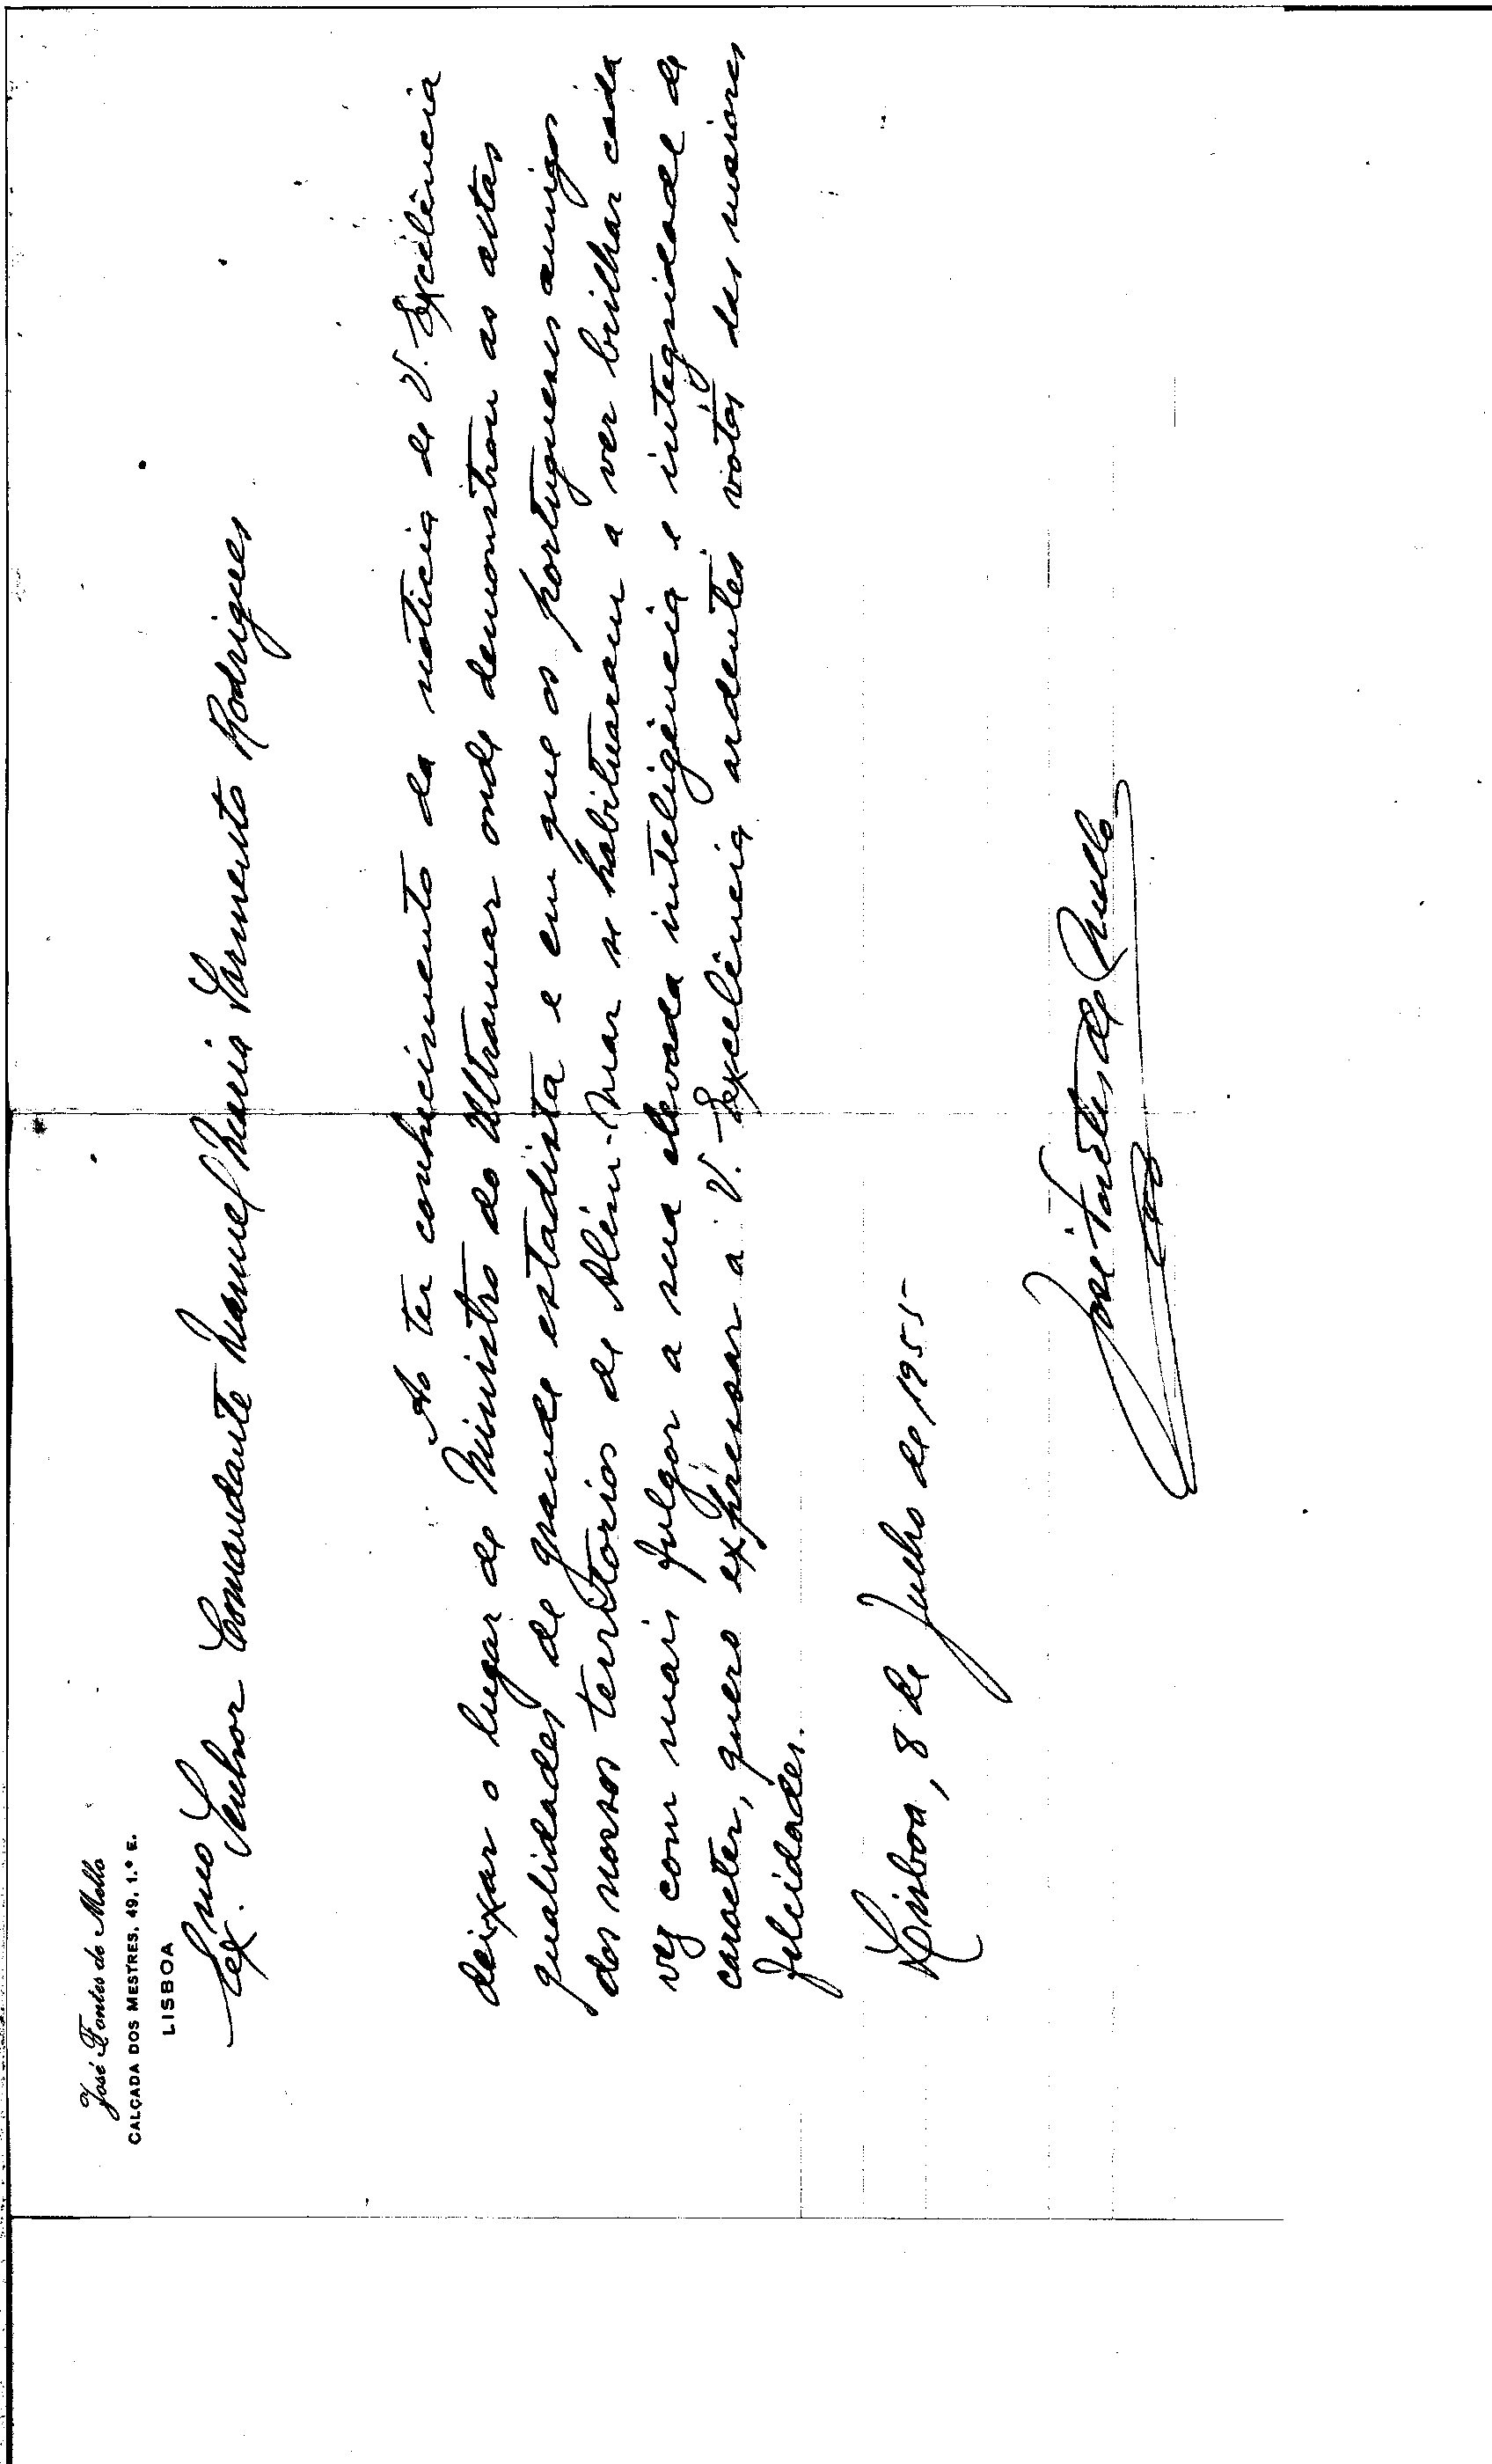 José Fontes de Mello
CALÇADA DOS MESTRES, 49, 1.º E.
LISBOA
Ex.mo Senhor Comandante Manuel Maria Sarmento Rodrigues
Ao ter conhecimento da notícia de V. Excelência
deixar o lugar de Ministro do Ultramar onde demonstrou as altas
qualidades de grande estadista e em que os portugueses amigos
dos nossos territórios de Além-Mar se habituaram a ver brilhar cada
vez com mais fulgor a sua elevada inteligência e integridade de
caracter, quero expressar a V. Excelência ardentes votos das maiores
felicidades.
Lisboa, 8 de Julho de 1955
José Fontes de Mello